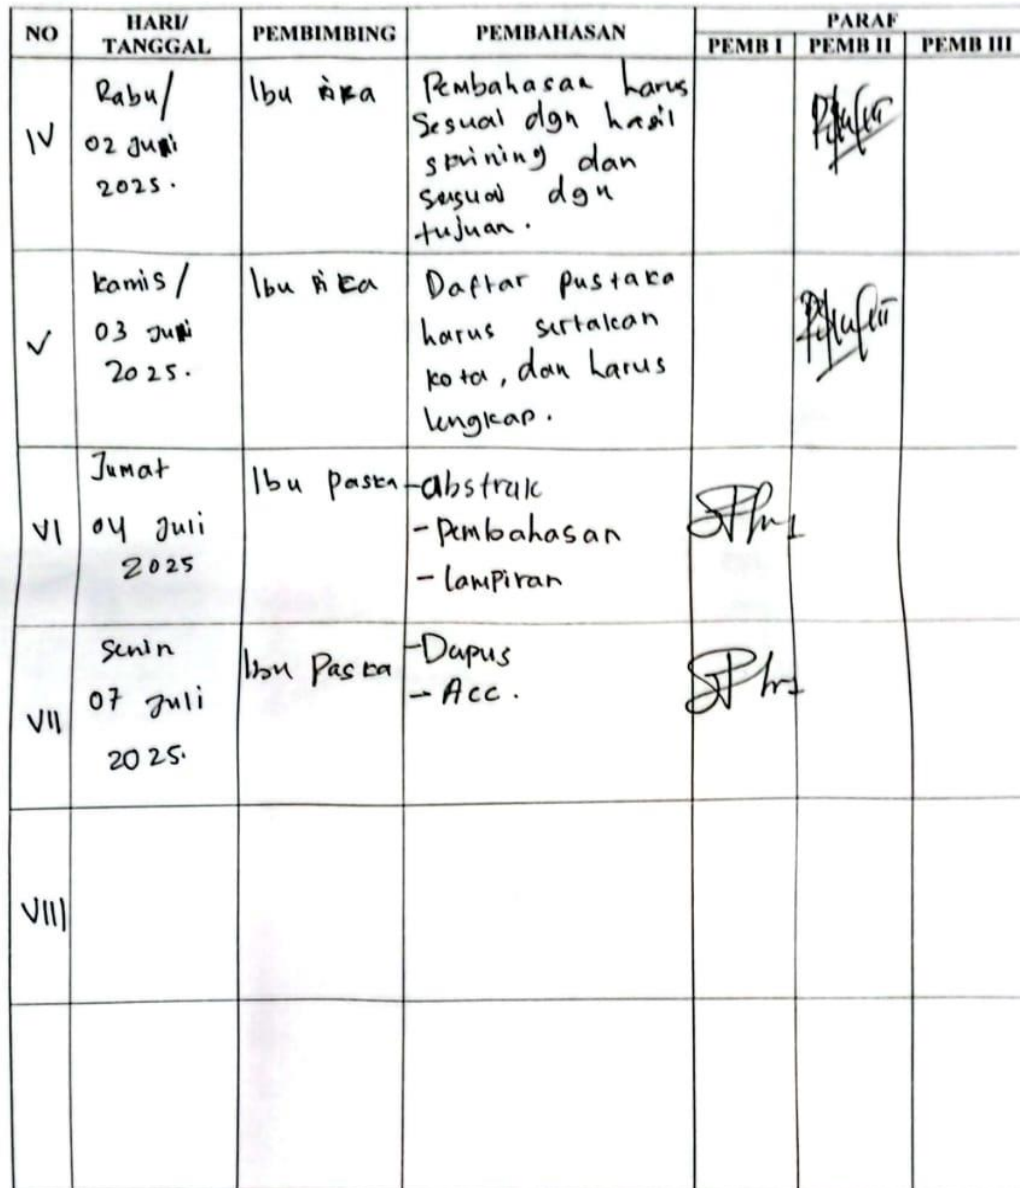 NO HARI/ TANGGAL PEMBIMBING PEMBAHASAN PARAF
PEMB I PEMB II PEMB III
IV
Rabu/
02 Juni
2025.
Ibu Rika
Pembahasan harus
Sesuai dgn hasil
skrining dan
sesuai dgn
tujuan.
V
Kamis/
03 Juni
2025.
Ibu Rika
Daftar pustaka
harus sertakan
kota, dan harus
lengkap.
VI
Jumat
04 Juli
2025
Ibu Paska
-abstrak
- Pembahasan
- Lampiran
VII
Senin
07 Juli
2025.
Ibu Paska
-Dapus
- Acc.
VIII